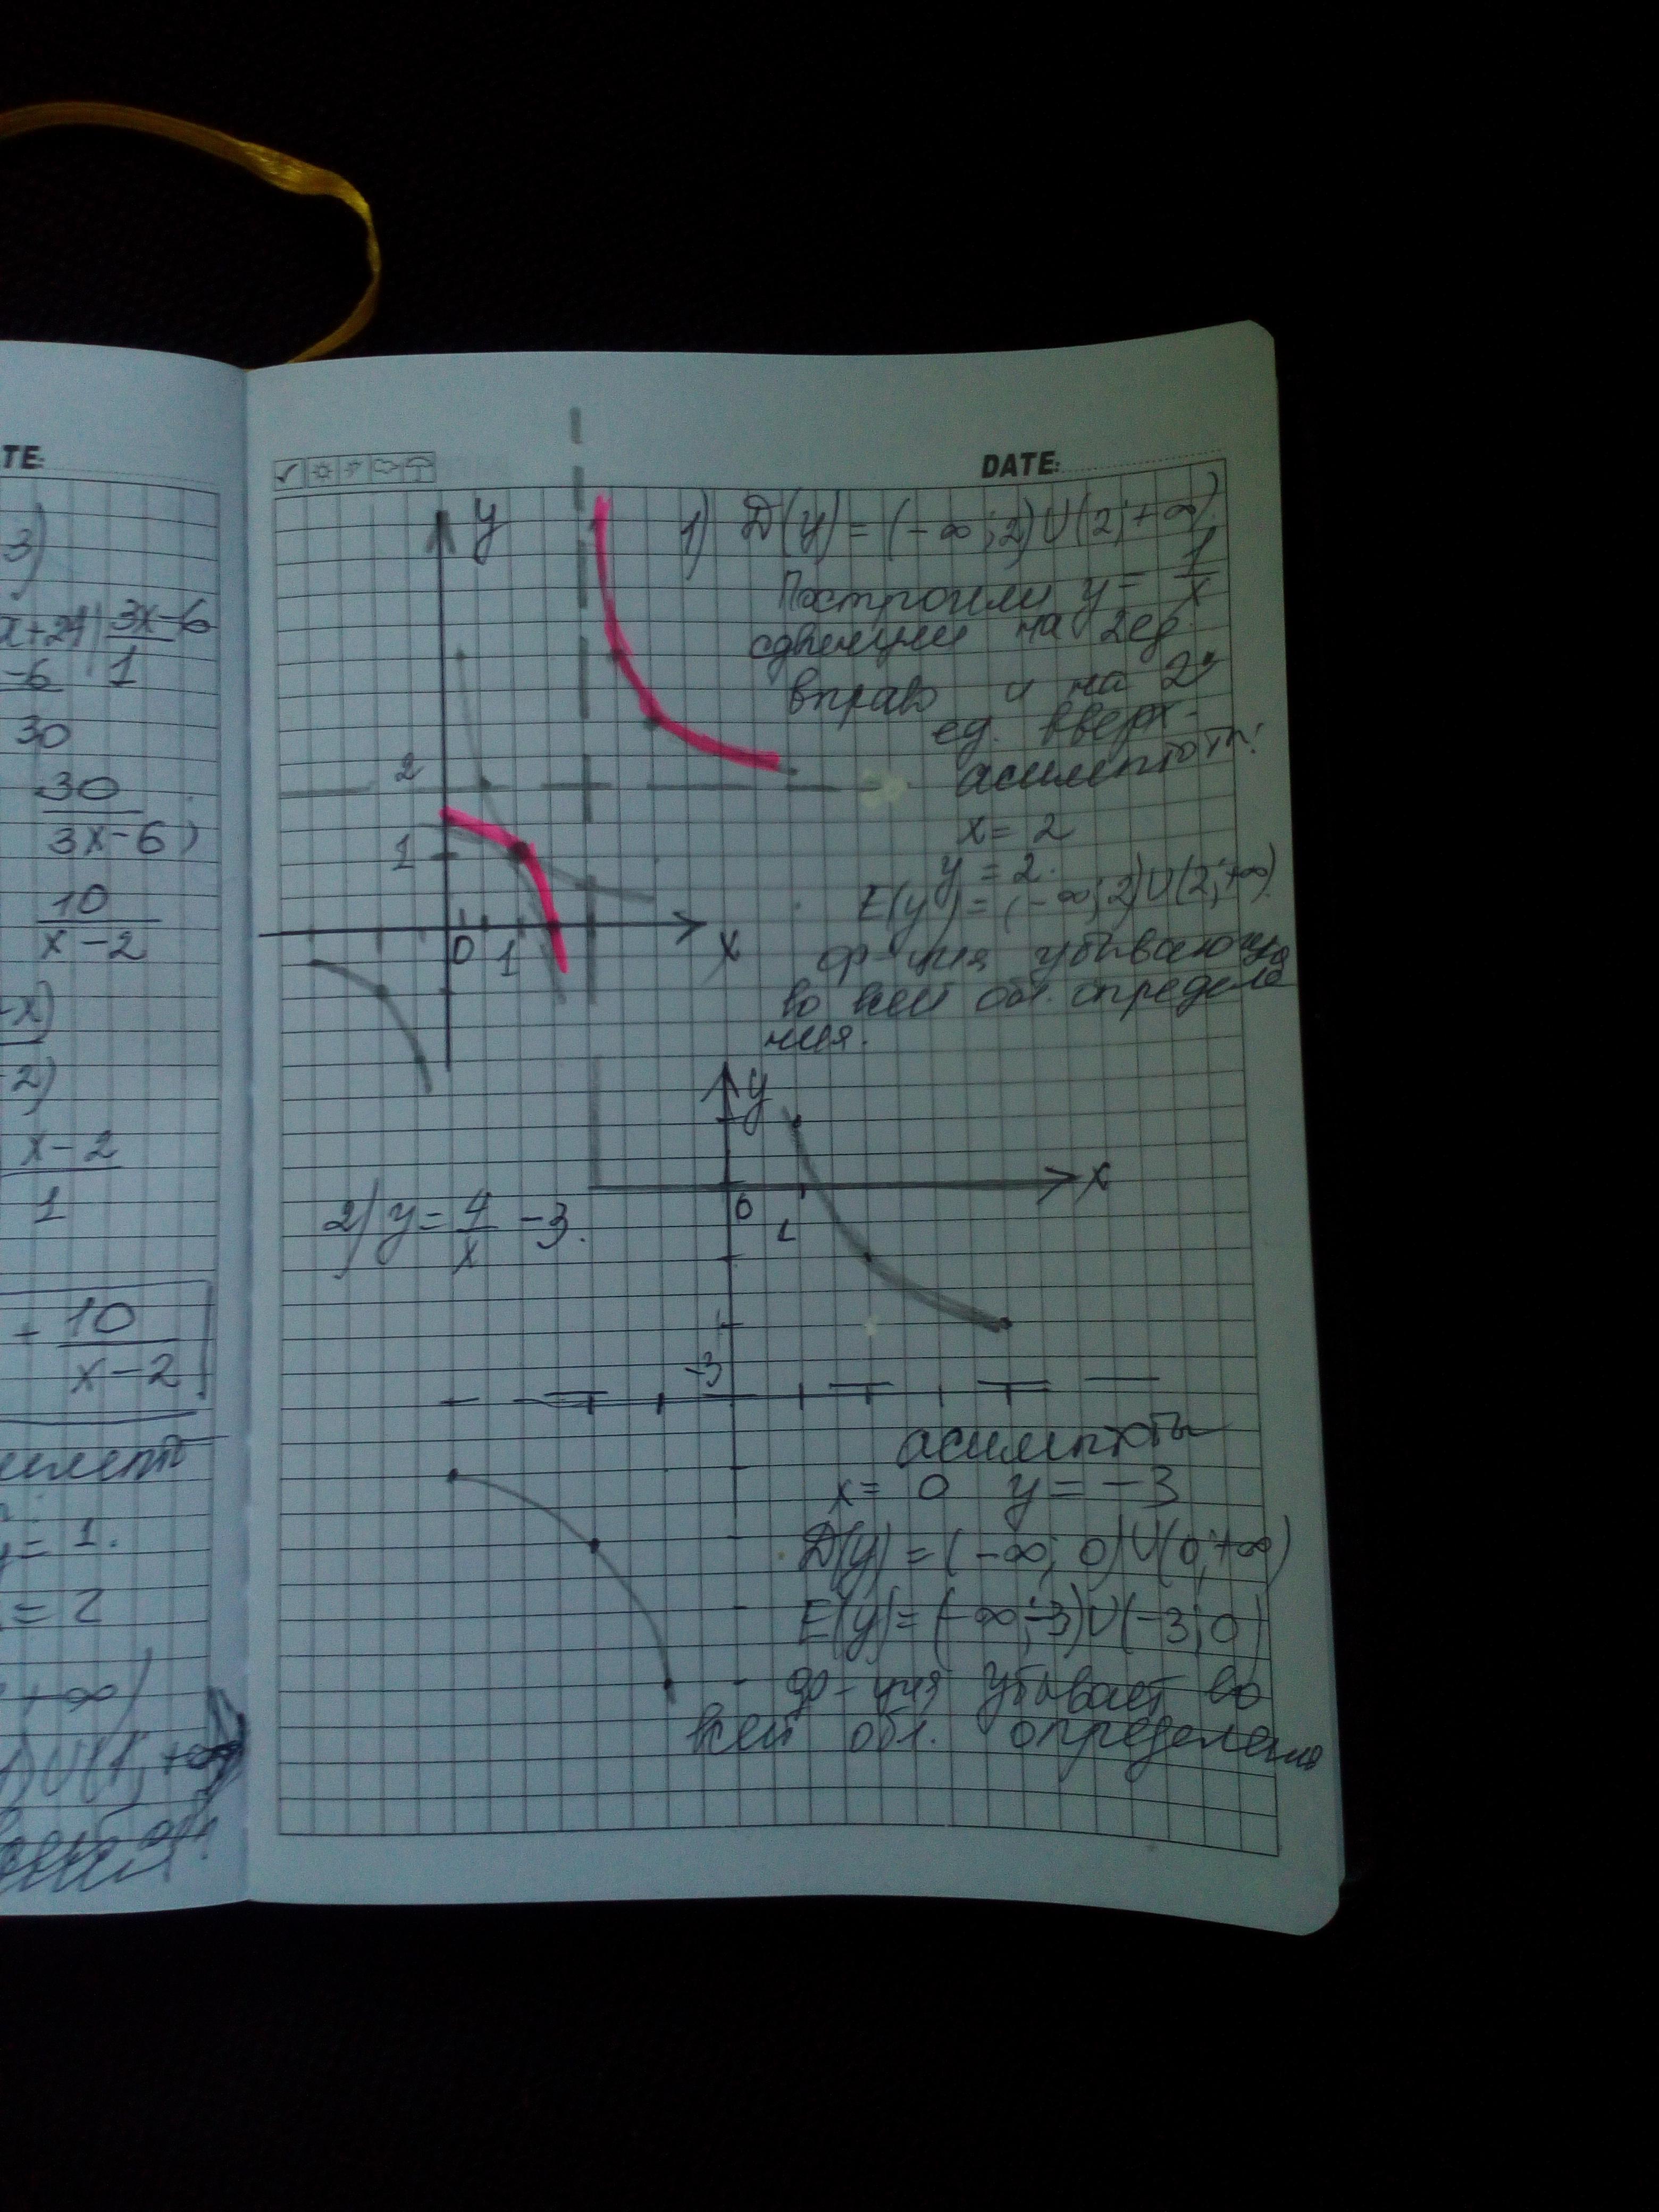 TE:
DATE:
3)
x+24 | 3x-6
-6 1
30
30
3x-6 ;
10
x-2
-x)
-2)
x-2
1
- 10
x-2
y = 1.
= 2
+∞)
) U (1; +∞)
y
2
1
0 1 x
1) D(y) = (-∞; 2) U (2; +∞)
Построили y = 1/x
сдвинули на 2 ед.
вправо и на 2
ед. вверх.
асимптоты:
x = 2
y = 2.
E(y) = (-∞; 2) U (2; +∞)
ф-ция убывающая
во всей обл. определе
ния.
y
x
0 1
2) y = 4/x - 3.
-3
асимптоты
x = 0 y = -3
D(y) = (-∞; 0) U (0; +∞)
E(y) = (-∞; -3) U (-3; 0)
ф-ция убывает во
всей обл. определения